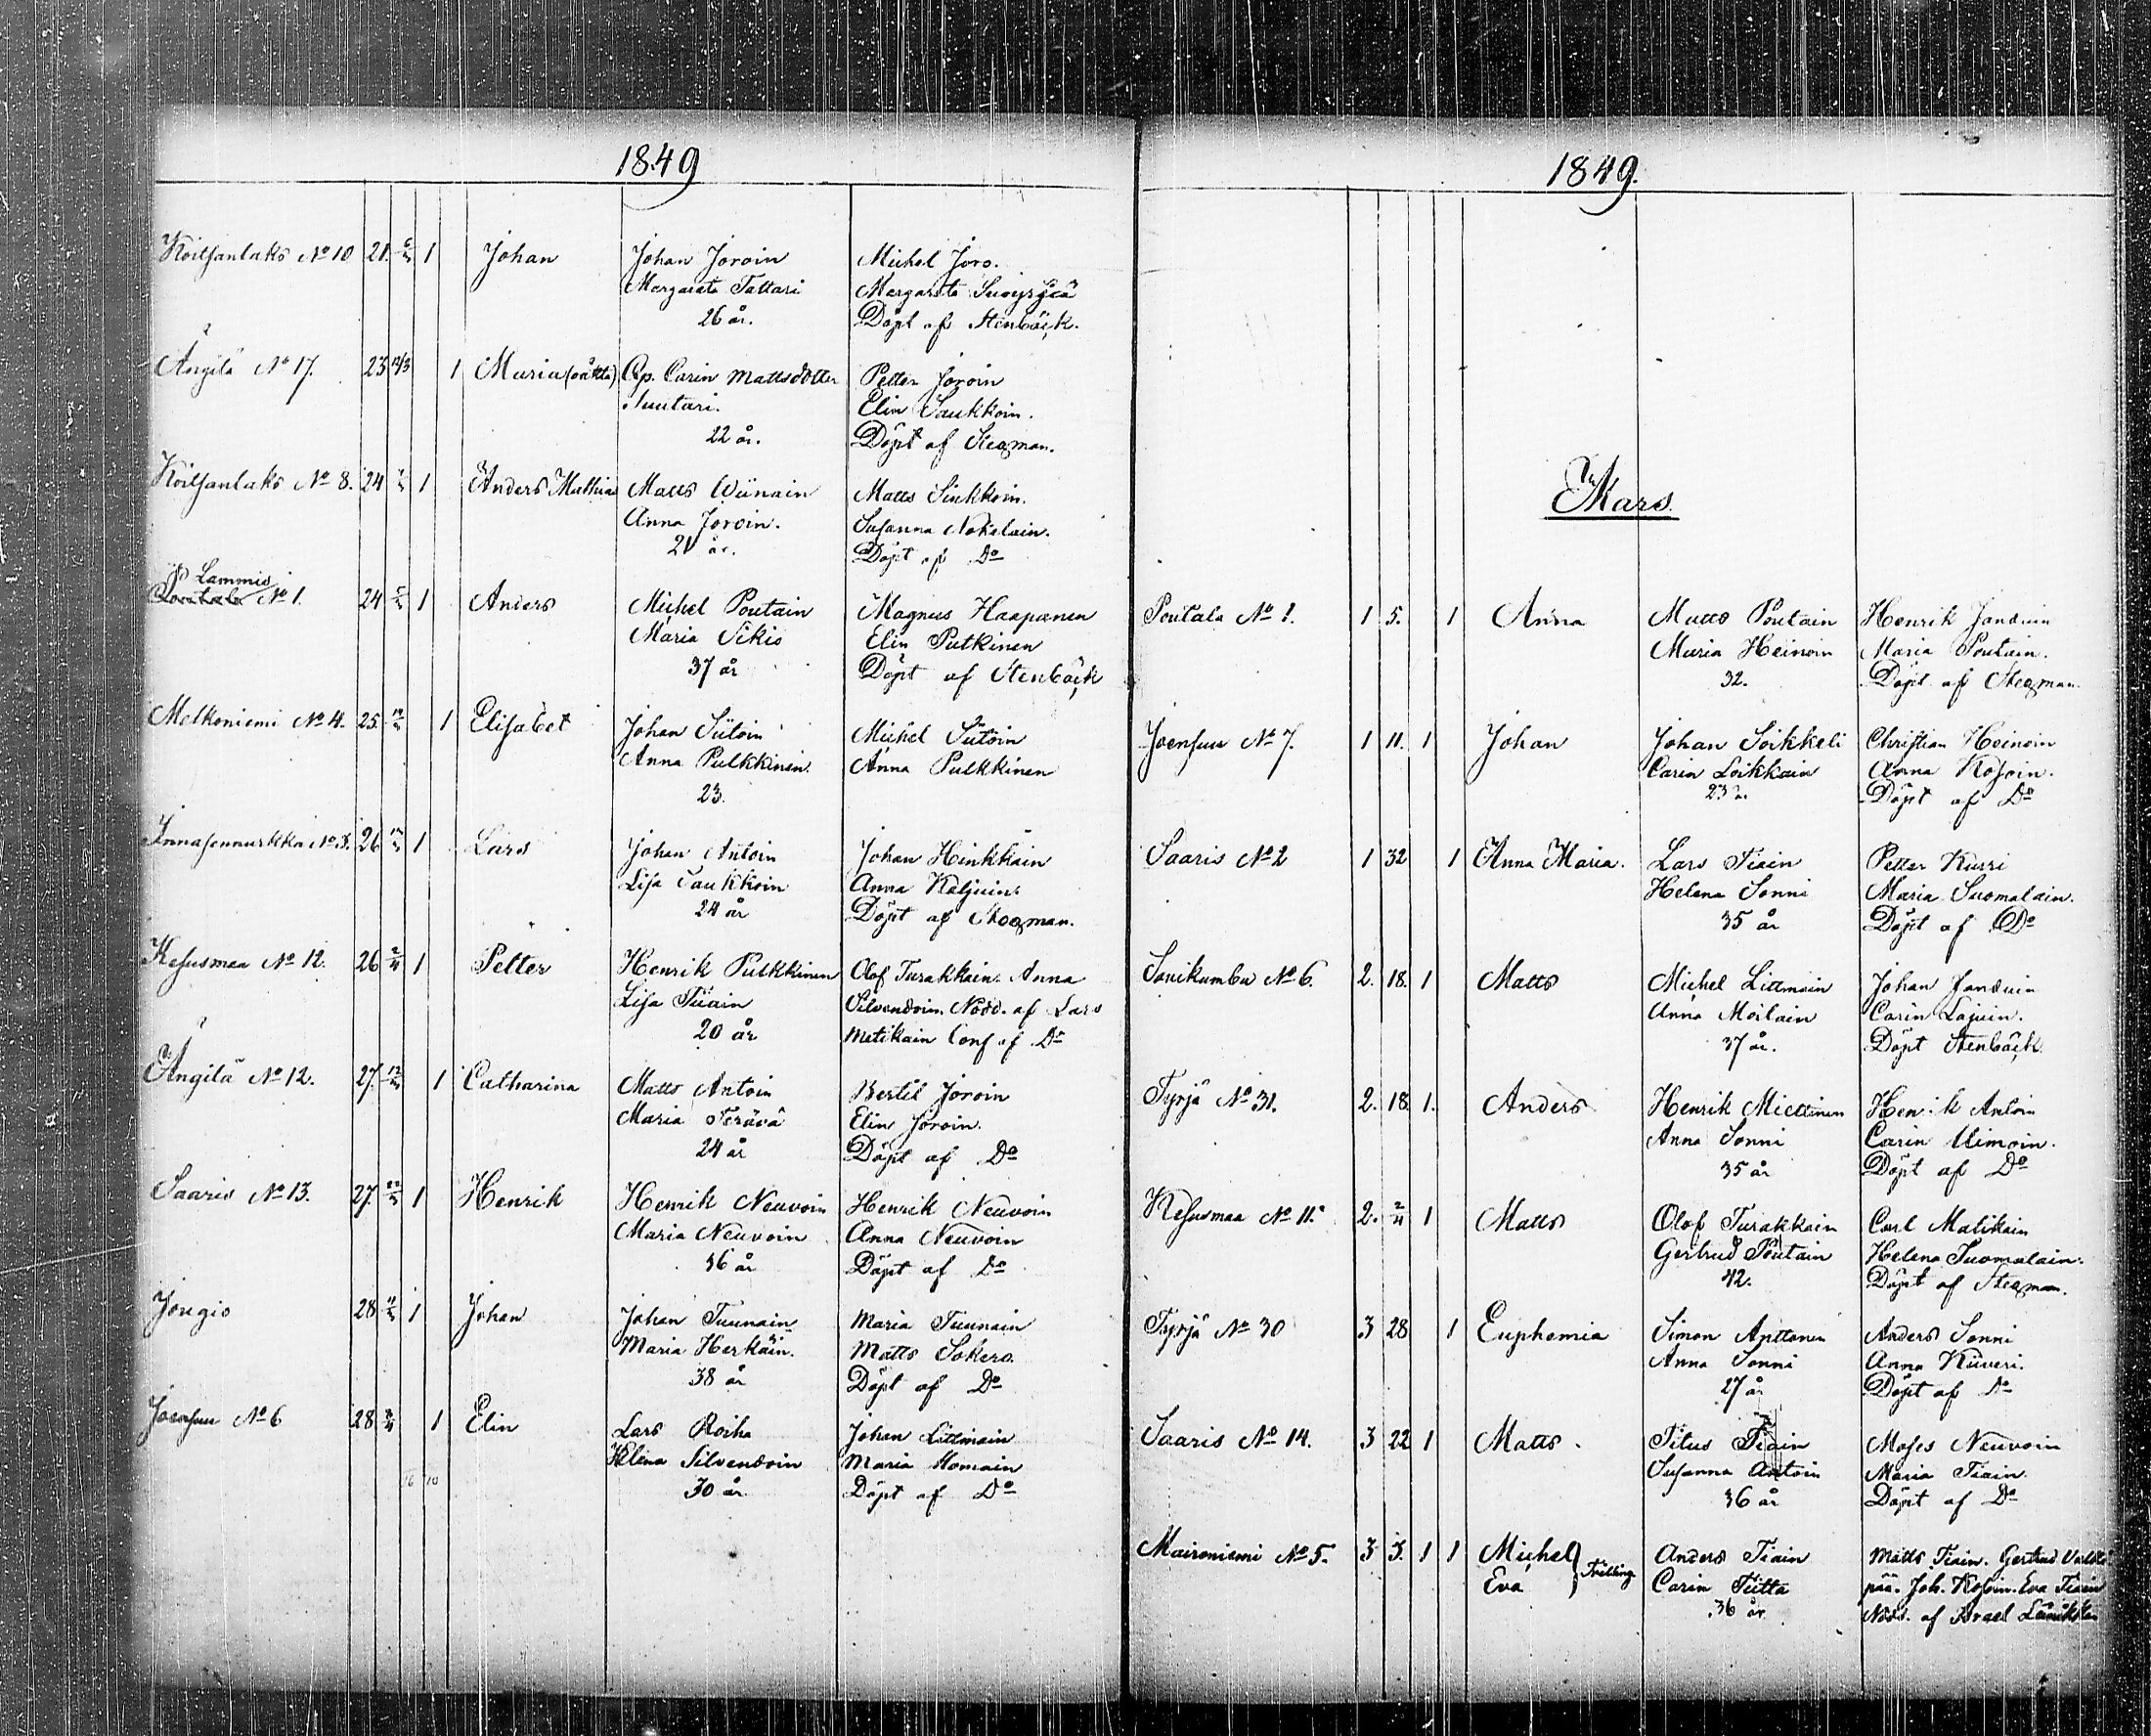 1849
Koitsanlaks No 10 21. 1 Johan Johan Joroin Michel Joro.
Margareta Tattari Margareta
26 år. Döpt af Stenbäck.
Ängilä No 17. 23 1 Maria (oäkta) Qp. Carin Mattsdotter Petter Joroin
Suutari. Elin Saukkoin.
22 år. Döpt af Stegman.
Koitsanlaks No 8. 24 1 Anders Mathias Matts Wiinain Matts Sinkkoin.
Anna Joroin. Susanna Nokelain.
21 år. Döpt af Do
Lammis
Poutala No 1. 24 1 Anders Michel Poutain Magnus Haapanen
Maria Sikiö Elin Putkinen
37 år Döpt af Stenbäck
Melkoniemi No 4. 25 1 Elisabet Johan Siitoin Michel Siitoin
Anna Pulkkinen. Anna Pulkkinen
23.
Innasennurkka No 3. 26 1 Lars Johan Antoin Johan Hinkkain
Lisa Saukkoin Anna Kaljuin.
24 år Döpt af Stegman.
Kesusmaa No 12. 26 2/4 1 Petter Henrik Pulkkinen Olof Turakkain. Anna
Lisa Tiiain Silvendoin. Nödd. af Lars
20 år Matikain Conf af Do
Ängilä No 12. 27. 1 Catharina Matts Antoin Bertil Joroin
Maria Terävä Elin Joroin.
24 år Döpt af Do
Saaris No 13. 27. 1 Henrik Henrik Neuvoin Henrik Neuvoin
Maria Neuvoin Anna Neuvoin
36 år Döpt af Do
Jongio 28 1 Johan Johan Tuunain Maria Tuunain
Maria Herkäin. Matts Sokero.
38 år Döpt af Do
Joensuu No 6 28 1 Elin Lars Roiha Johan Littmain
Helena Silvendoin Maria Homain
16 10 30 år Döpt af Do
1849.
Mars.
Poutala No 1. 1 5. 1 Anna Matts Poutain Henrik Janduin
Maria Heinoin Maria Poutain.
32. Döpt af Stegman.
Joensuu No 7. 1 11. 1 Johan Johan Soikkeli Christian Heinoin
Carin Loikkain Anna Kosoin.
23 Döpt af Do
Saaris No 2 1 32 1 Anna Maria. Lars Tiain Petter Kurri
Helena Sonni Maria Suomalain.
35 år Döpt af Do
Sarikumbu No 6. 2. 18. 1 Matts Michel Littmain Johan Janduin
Anna Moilain Carin Lajuin.
37 år. Döpt Stenbäck
Tyrjä No 31. 2. 18. 1. Anders Henrik Miettinen Henrik Antoin
Anna Sonni Carin Uimoin.
35 år Döpt af Do
Kesusmaa No 11. 2. 2/4 1 Matts Olof Turakkain Carl Matikain
Gertrud Poutain Helena Suomalain.
42. Döpt af Stegman.
Tyrjä No 30 3 28 1 Euphemia Simon Anttonen Anders Sonni
Anna Sonni Anna Kiiveri.
27 år Döpt af Do
Saaris No 14. 3 22 1 Matts. Titus Tiain Moses Neuvoin
Susanna Antoin Maria Tiain.
36 år Döpt af Do
Maironiemi No 5. 3 3. 1 1 Michel Tvilling Anders Tiain Matts Tiain. Gertrud Valkia
Eva Carin Tiitta pää. Joh. Kosoin. Eva Tiain
36 år Nödd. af Israel